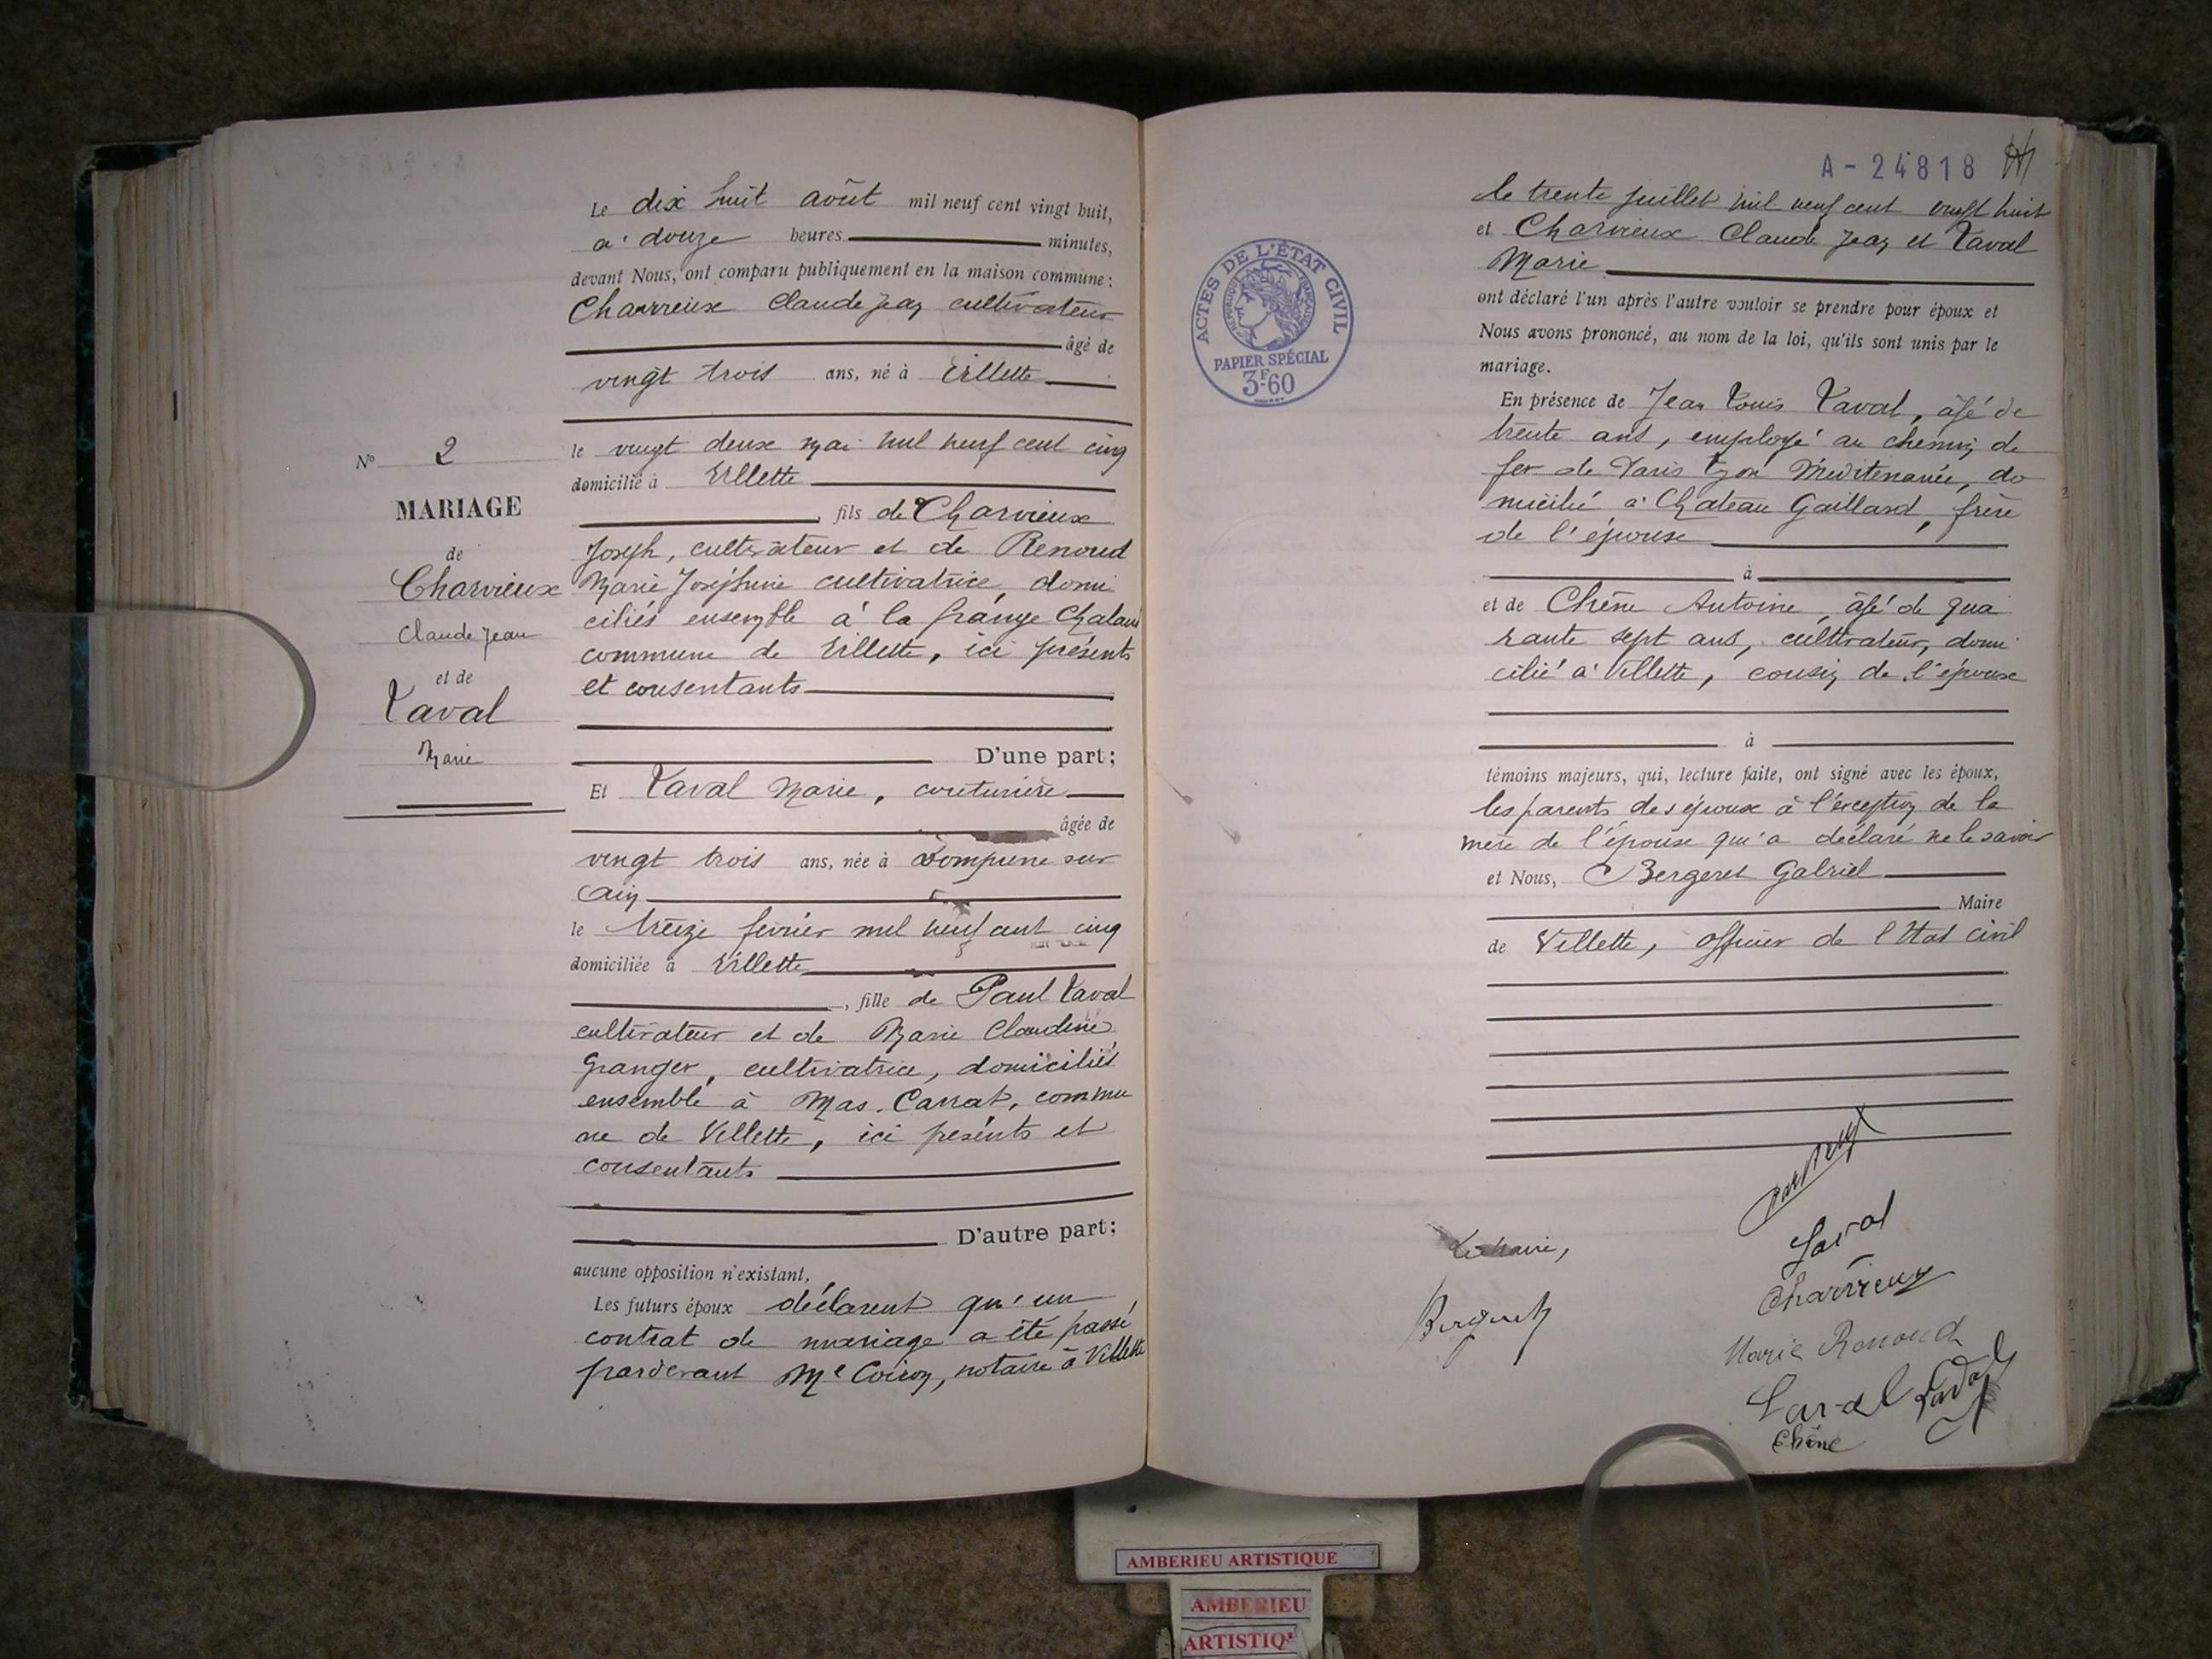 Le dix huit août mil neuf cent vingt huit,
à douze heures minutes,
devant Nous, ont comparu publiquement en la maison commune :
Charvieux Claude Jean cultivateur
âgé de
vingt trois ans, né à Villette
le vingt deux mai mil neuf cent cinq
domicilié à Villette
, fils de Charvieux
Joseph, cultivateur et de Renoud
Marie Joséphine cultivatrice, domi
ciliés ensemble à la grange Chaland
commune de Villette, ici présents
et consentants
D'une part ;
Et Laval Marie, couturière
âgée de
vingt trois ans, née à Dompierre sur
Ain
le treize février mil neuf cent cinq
domiciliée à Villette
, fille de Paul Laval
cultivateur et de Marie Claudine
Granger, cultivatrice, domiciliés
ensemble à Mas Carrat, commu
ne de Villette, ici présents et
consentants
D'autre part ;
aucune opposition n'existant,
Les futurs époux déclarent qu'un
contrat de mariage a été passé
pardevant Me Coiron, notaire à Villette
No 2
MARIAGE
de
Charvieux
Claude Jean
et de
Laval
Marie
A-24818
le trente juillet mil neuf cent vingt huit
et Charvieux Claude Jean et Laval
Marie
ont déclaré l'un après l'autre vouloir se prendre pour époux et
Nous avons prononcé, au nom de la loi, qu'ils sont unis par le
mariage.
En présence de Jean Louis Laval, âgé de
trente ans, employé au chemin de
fer de Paris Lyon Méditerranée, do
micilié à Château Gaillard, frère
de l'épouse
à
et de Chêne Antoine, âgé de qua
rante sept ans, cultivateur, domi
cilié à Villette, cousin de l'épouse
à
témoins majeurs, qui, lecture faite, ont signé avec les époux,
les parents des époux à l'exception de la
mère de l'épouse qui a déclaré ne le savoir
et Nous, Bergeret Gabriel
Maire
de Villette, officier de l'Etat civil
Le maire,
Bergeret
Laval
Charvieux
Marie Renoud
Laval Laval
Chêne
ACTES DE L'ÉTAT CIVIL
RÉPUBLIQUE FRANÇAISE
PAPIER SPÉCIAL
3F-60
AMBERIEU ARTISTIQUE
AMBERIEU
ARTISTIQ